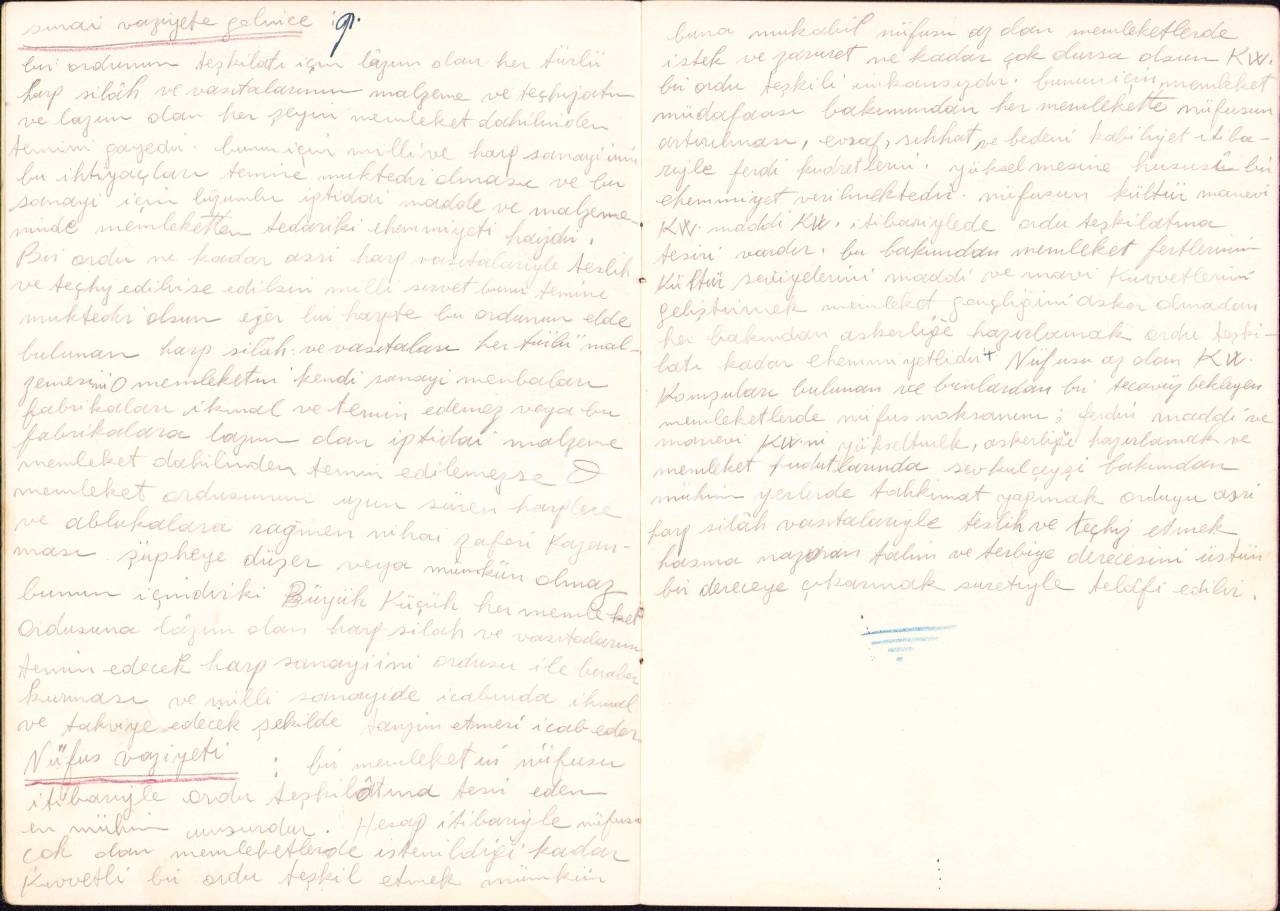 sınai vaziyete gelince
bir ordunun teşkilatı için lâzım olan her türlü
harp silâh ve vasıtalarının malzeme ve teçhizatın
ve lazım olan her şeyin memleket dahilinden
temini gayedir. bunun için milli ve harp sanayiinin
bu ihtiyaçları temine muktedir olması ve bu
sanayi için lüzumlu iptidai madde ve malzeme-
ninde memleketten tedariki ehemmiyeti haizdir.
Bir ordu ne kadar asri harp vasıtalariyle teslih
ve teçhiz edilirse edilsin milli servet bunu temine
muktedir olsun eğer bir harpte bu ordunun elde
bulunan harp silâh ve vasıtaları her türlü mal-
zemesini o memleketin kendi sanayi menbaları
fabrikaları ikmal ve temin edemez veya bu
fabrikalara lazım olan iptidai malzeme
memleket dahilinden temin edilemezse O
memleket ordusunun uzun süren harplere
ve ablukalara rağmen nihai zaferi kazan-
ması şüpheye düşer veya mümkün olmaz
bunun içindirki Büyük Küçük her memleket
ordusuna lâzım olan harp silah ve vasıtalarını
temin edecek harp sanayiini ordusu ile beraber
kurması ve milli sanayide icabında ikmal
ve takviye edecek şekilde tanzim etmesi icab eder
Nüfus vaziyeti : bir memleketin nüfusu
itibariyle ordu teşkilâtına tesir eden
en mühim unsurdur. Hesap itibariyle nüfusu
çok olan memleketlerde istenildiği kadar
Kuvvetli bir ordu teşkil etmek mümkün
buna mukabil nüfusu az olan memleketlerde
istek ve zaruret ne kadar çok olursa olsun KW.
bir ordu teşkili imkansızdır. bunun için memleket
müdafaası bakımından her memlekette nüfusun
artırılması, evsaf, sıhhat, ve bedeni kabiliyet itiba-
riyle ferdi kudretlerin. yükselmesine hususi bir
ehemmiyet verilmektedir. nüfusun kültür manevi
KW. maddi KW. itibariylede ordu teşkilatına
tesiri vardır. bu bakımdan memleket fertlerinin
Kültür seviyelerini maddi ve mavi Kuvvetlerini
geliştirmek memleket gençliğini asker olmadan
her bakımdan askerliğe hazırlamak ordu teşki-
latı kadar ehemmiyetlidir + Nüfusu az olan KW.
Komşuları bulunan ve bunlardan bir tecavüz bekleyen
memleketlerde nüfus noksanını; ferdin maddi ve
manevi KW.ni yükseltmek, askerliğe hazırlamak ve
memleket hudutlarında sevkulceyşi bakımdan
mühim yerlerde tahkimat yapmak orduyu asri
harp silâh vasıtalariyle teslih ve teçhiz etmek
hasma nazaran talim ve terbiye derecesini üstün
bir dereceye çıkarmak suretiyle telâfi edilir.